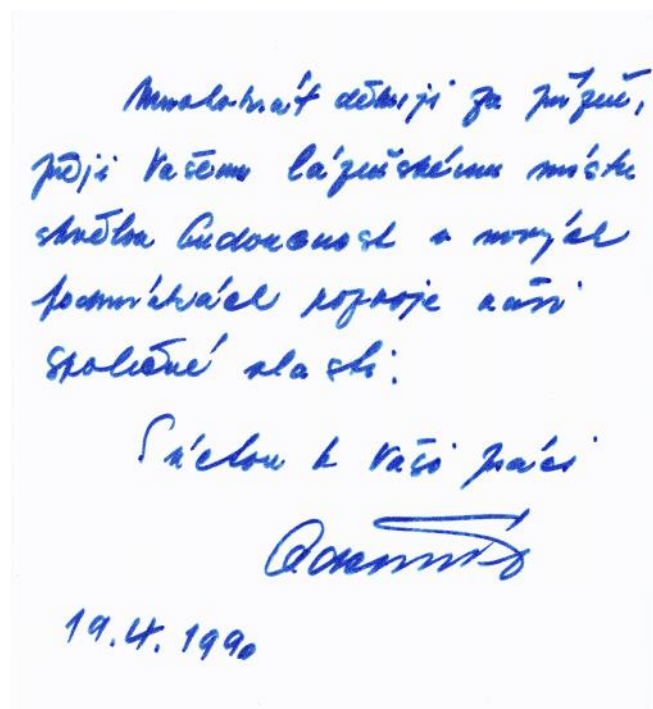 Mnohokrát děkuji za přízeň,
přeji Vašemu lázeňskému místu
skvělou budoucnost v nových
podmínkách rozvoje naší
společné vlasti.
S úctou k Vaší práci
19. 4. 1990